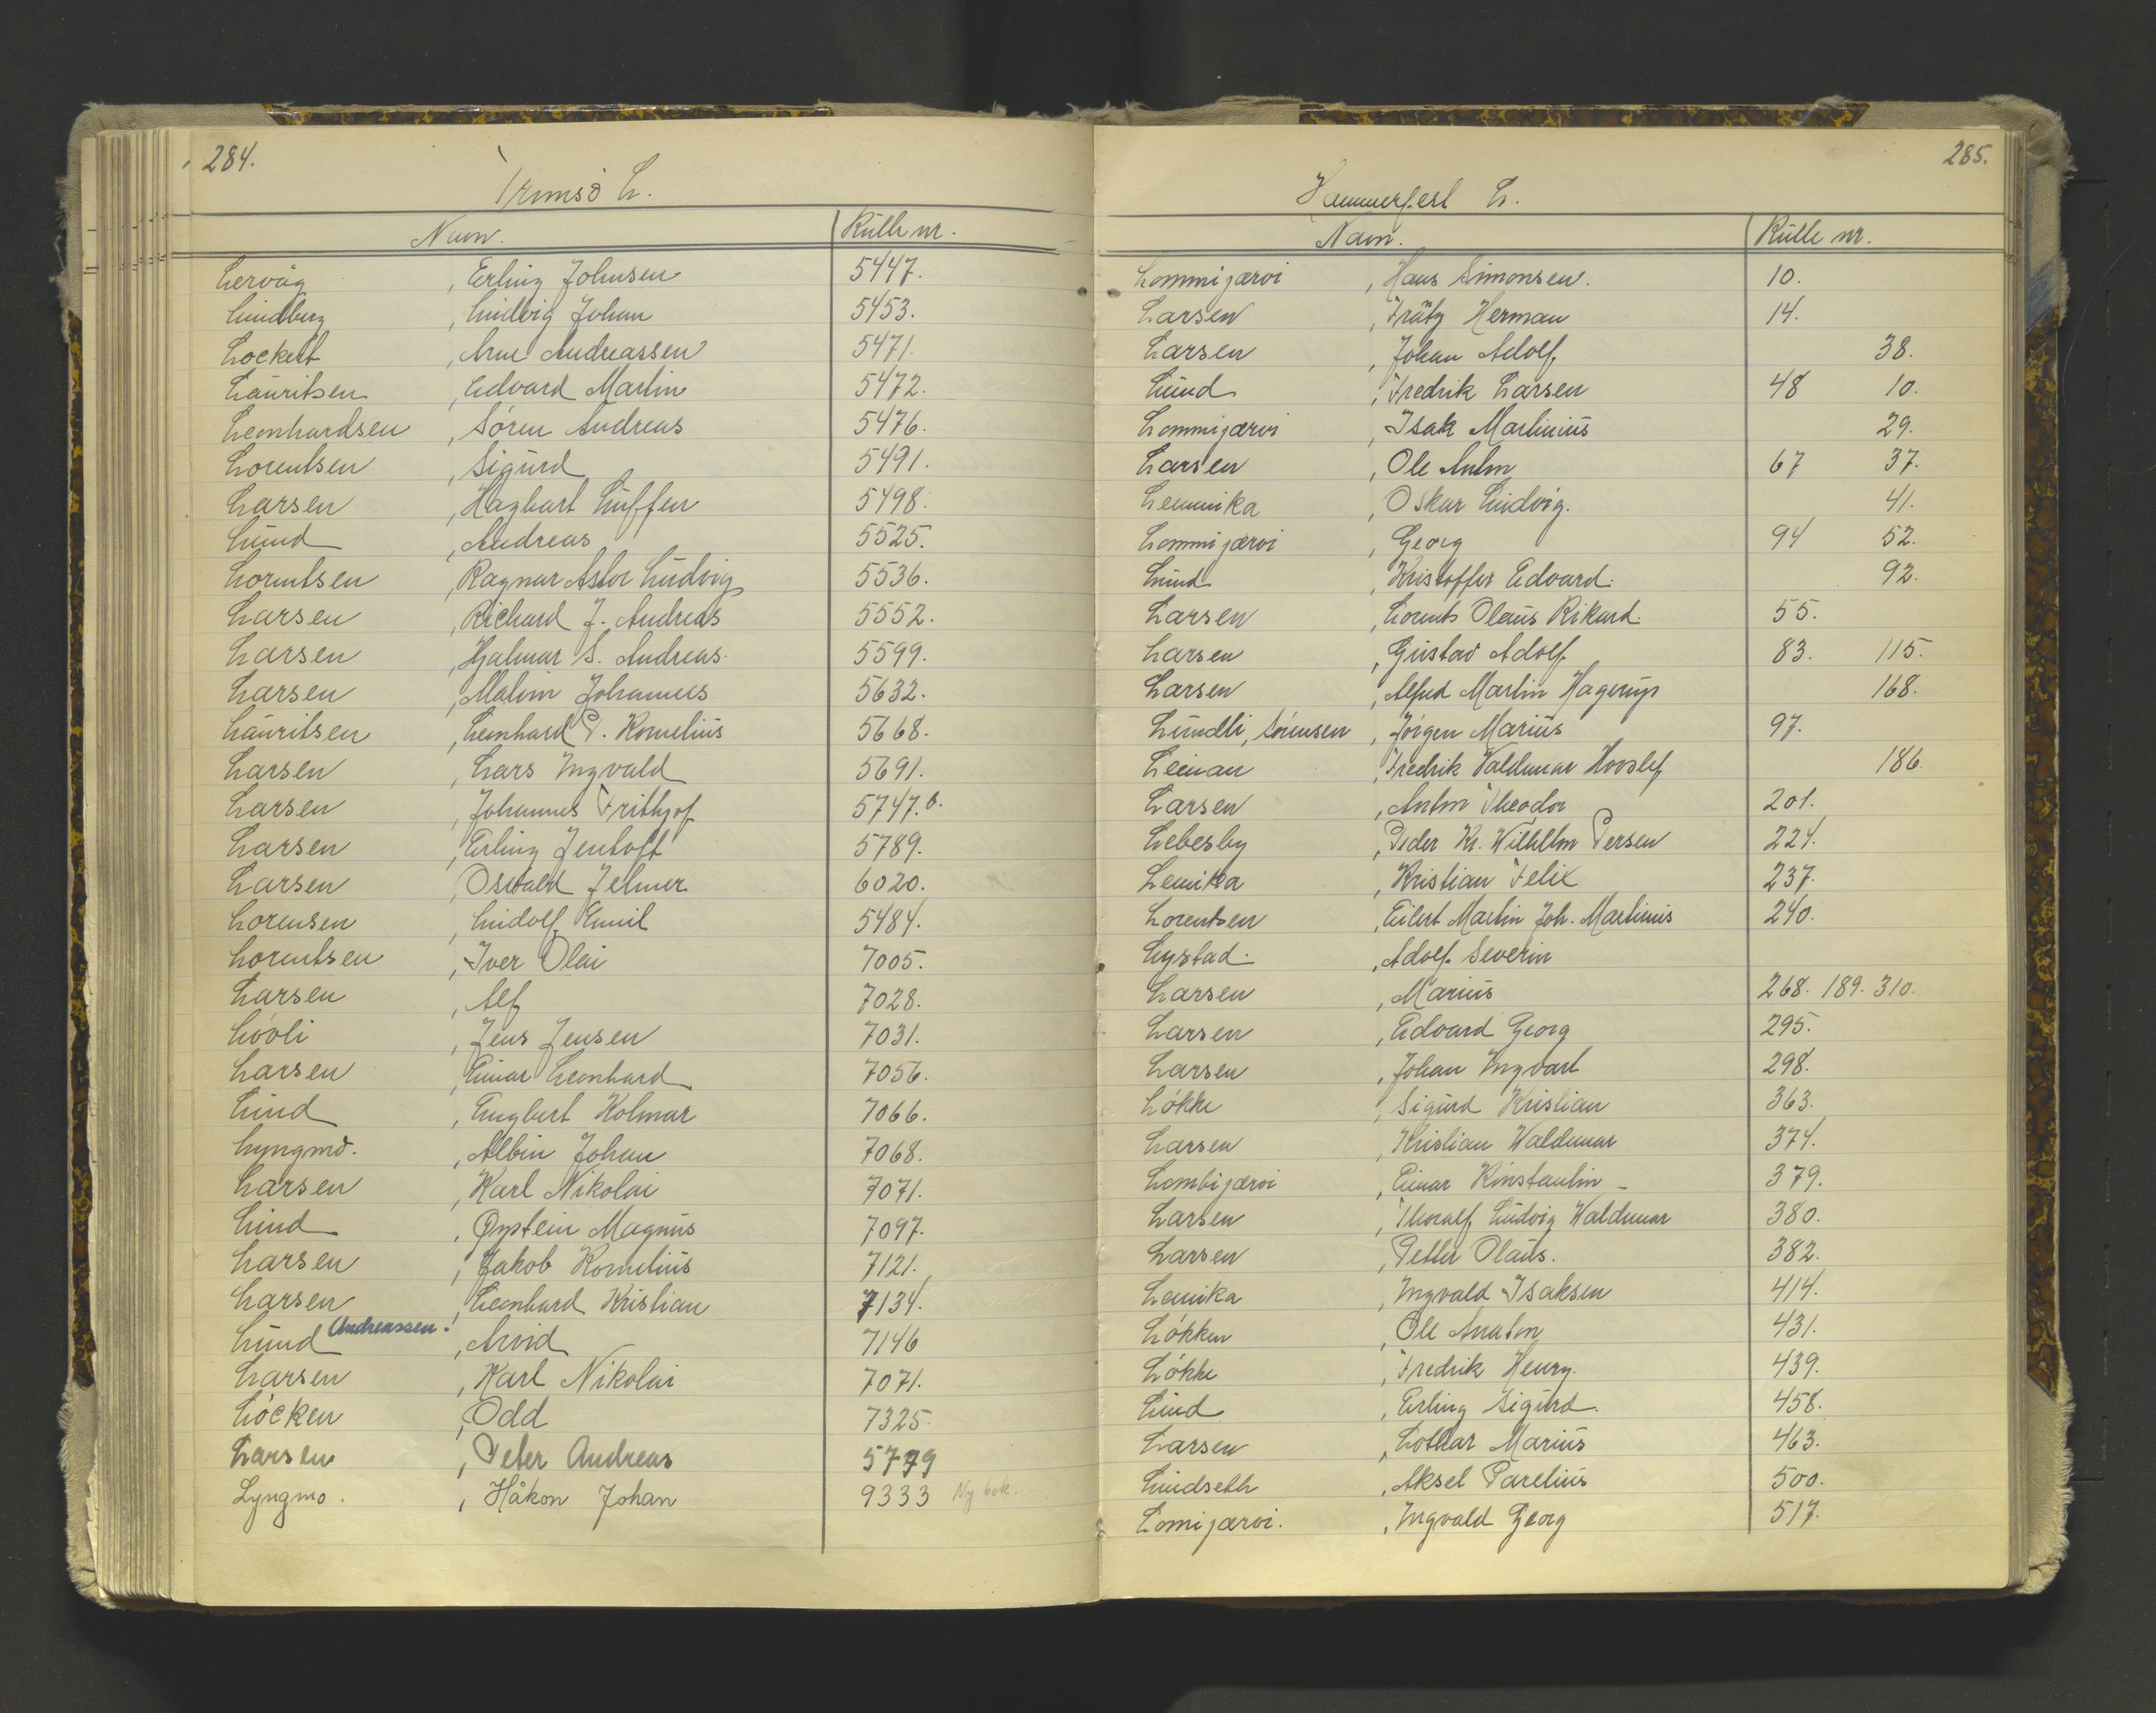 284.
Tromsø L.
Navn. Rulle nr.
Lervåg, Erling Johnsen 5447.
Lundberg, Ludvig Johan 5453.
Lockert, Arne Andreassen 5471.
Lauritsen, Edvard Martin 5472.
Leonhardsen, Søren Andreas 5476.
Lorentsen, Sigurd 5491.
Larsen, Hagbart Luffen 5498.
Lund, Andreas 5525.
Lorentsen, Ragnar Astor Ludvig 5536.
Larsen, Richard J. Andreas 5552.
Larsen, Hjalmar S. Andreas 5599.
Larsen, Malvin Johannes 5632.
Lauritsen, Leonhard P. Kornelius 5668.
Larsen, Lars Ingvald 5691.
Larsen, Johannes Frithjof 5747.b.
Larsen, Erling Jentoft 5789.
Larsen, Osvald Jelmer 6020.
Lorensen, Ludolf Emil 5484.
Lorentsen, Iver Olai 7005.
Larsen, Alf 7028.
Lövli, Jens Jensen 7031.
Larsen, Einar Leonhard 7056.
Lund, Engbert Kolmar 7066.
Lyngmo., Albin Johan 7068.
Larsen, Karl Nikolai 7071.
Lund, Øystein Magnus 7097.
Larsen, Jakob Kornelius 7121.
Larsen, Leonhard Kristian 7134.
Lund Andreassen., Arvid 7146
Larsen, Karl Nikolai 7071.
Löcken, Odd 7325.
Larsen, Peter Andreas 5779
Lyngmo., Håkon Johan 9333 Ny bok.
285.
Hammerfest L.
Navn. Rulle nr.
Lommijærvi, Hans Simonsen. 10.
Larsen, Frätz Herman 14.
Larsen, Johan Adolf 38.
Lund, Fredrik Larsen 48 10.
Lommijærvi, Isak Martinius 29.
Larsen, Ole Anton 67 37.
Leumika, Oskar Ludvig. 41.
Lommijærvi, Georg 94 52.
Lund, Kristoffer Edvard. 92.
Larsen, Lorents Olaus Rikard. 55.
Larsen, Gustav Adolf 83. 115.
Larsen, Alfred Martin Hagerup 168.
Lundli, Sörensen, Jörgen Marius 97.
Leinan, Fredrik Valdemar Hooslef 186
Larsen, Anton Theodor 201.
Lebesby, Peder Kr. Wilhelm Persen 224.
Lemika, Kristian Felix 237.
Lorentsen, Eilert Martin Joh. Martinius 240.
Lystad., Adolf Severin
Larsen, Marius 268. 189. 310.
Larsen, Edvard Georg 295.
Larsen, Johan Ingvart 298.
Lökke, Sigurd Kristian 363.
Larsen, Kristian Waldemar 374.
Lombijærvi, Einar Konstantin - 379.
Larsen, Thoralf Ludvig Waldemar 380.
Larsen, Petter Olaus. 382.
Lemika, Ingvald Isaksen 414.
Lökken, Ole Anaton 431.
Lökke, Fredrik Henry. 439.
Lund, Erling Sigurd. 458.
Larsen, Lothar Marius 463.
Lindseth, Aksel Parelius 500.
Lomijærvi., Ingvald Georg 517.